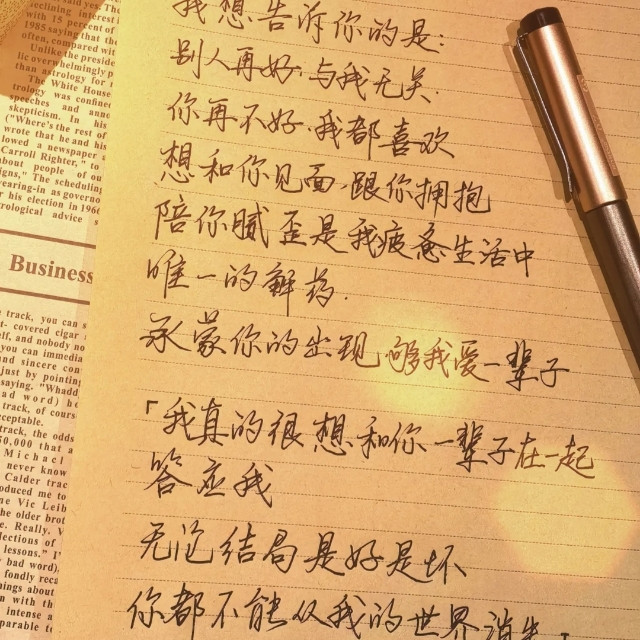 said yes. The
declining interest
with 15 percent of
1985 saying that
often, compared wit
Unlike the preside
lic overwhelmingly p
than astrology for
The White House
trology was confined
speeches and anno
skepticism. In his
("Where's the rest of
wrote that he and his
lowed a newspaper
Carroll Righter," to
about people of ou
igns," The scheduling
wearing-in as governo
his election in 1966
trological advice s
Business
track, you can s
t- covered cigar
elf, and nobody no
you can immedia
and sincere con
just by pointing
saying. "Whadd
ad word) he
track, of cours
cceptable.
track, the odds
50,000 that a
Michael
never know
Calder trac
oduced me to
ne Vic Leib
he older brot
e. Really. V
lections of
lessons." I'
bad word),
fondly reca
ings about
n with th
intense a
parable to
我想告诉你的是:
别人再好,与我无关.
你再不好,我都喜欢
想和你见面,跟你拥抱
陪你腻歪是我疲惫生活中
唯一的解药.
承蒙你的出现,够我爱一辈子
「我真的很想和你一辈子在一起
答应我
无论结局是好是坏
你都不能从我的世界消失